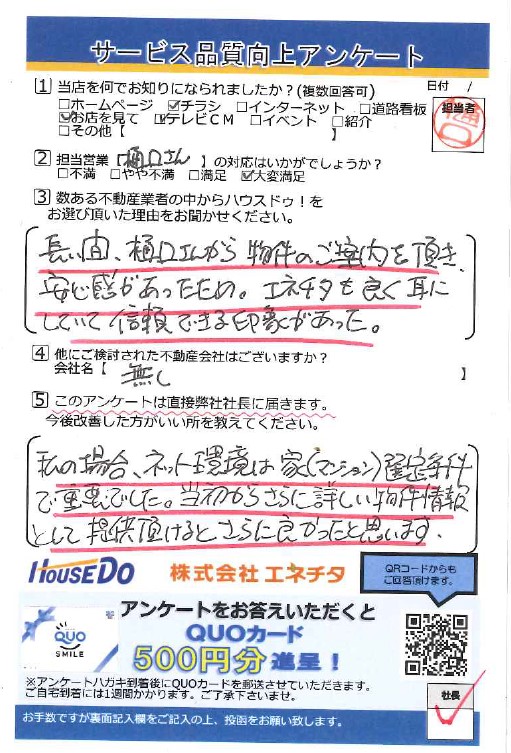 サービス品質向上アンケート
1 当店を何でお知りになられましたか?(複数回答可)
日付 /
□ホームページ ☑チラシ □インターネット □道路看板
☑お店を見て ☑テレビCM □イベント □紹介
□その他【 】
担当者
樋口
2 担当営業【樋口さん 】の対応はいかがでしょうか?
□不満 □やや不満 □満足 ☑大変満足
3 数ある不動産業者の中からハウスドゥ!を
お選び頂いた理由をお聞かせください。
長い間、樋口さんから物件のご案内を頂き、
安心感があったため。エネチタも良く耳に
していて信頼できる印象があった。
4 他にご検討された不動産会社はございますか?
会社名【 無し 】
5 このアンケートは直接弊社社長に届きます。
今後改善した方がいい所を教えてください。
私の場合、ネット環境は家(マンション)選定条件
で重要でした。当初からさらに詳しい物件情報
として提供頂けるとさらに良かったと思います.
HOUSEDO 株式会社 エネチタ
QRコードからも
ご回答頂けます。
QUO
SMILE
アンケートをお答えいただくと
QUOカード
500円分進呈!
※アンケートハガキ到着後にQUOカードを郵送させていただきます。
ご自宅到着には1週間かかります。ご了承下さいませ。
社長
お手数ですが裏面記入欄をご記入の上、投函をお願い致します。